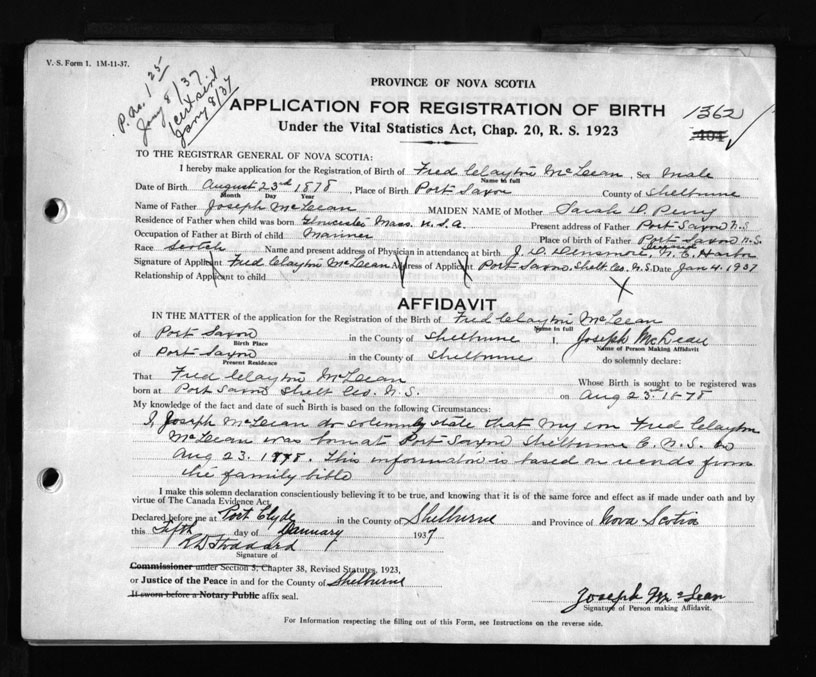 V. S. Form 1. 1M-11-37.
Jany 8/37
Jany 8/37
PROVINCE OF NOVA SCOTIA
APPLICATION FOR REGISTRATION OF BIRTH
1362
Under the Vital Statistics Act, Chap. 20, R. S. 1923
TO THE REGISTRAR GENERAL OF NOVA SCOTIA:
I hereby make application for the Registration of Birth of Fred Clayton McLean, Sex Male
Name in full
Date of Birth August 23rd 1878, Place of Birth Port Saxon County of Shelburne
Month Day Year
Name of Father Joseph McLean MAIDEN NAME of Mother Sarah D. Perry
Residence of Father when child was born Gloucester Mass. U.S.A. Present address of Father Port Saxon N.S
Occupation of Father at Birth of child Mariner Place of birth of Father Port Saxon N.S.
Race Scotch Name and present address of Physician in attendance at birth J. D. Densmore, N. E. Harbor
Signature of Applicant Fred Clayton McLean Address of Applicant Port Saxon, Shelt. Co. N.S. Date Jan 4. 1937
Relationship of Applicant to child X
AFFIDAVIT
IN THE MATTER of the application for the Registration of the Birth of Fred Clayton McLean
Name in full
of Port Saxon in the County of Shelburne I, Joseph McLean
Birth Place Name of Person Making Affidavit
of Port Saxon in the County of Shelburne do solemnly declare:
Present Residence
That Fred Clayton McLean Whose Birth is sought to be registered was
born at Port Saxon Shelt Co. N.S. on Aug 23. 1878
My knowledge of the fact and date of such Birth is based on the following Circumstances:
I, Joseph McLean do solemnly state that my son Fred Clayton
McLean was born at Port Saxon Shelburne C. N.S. on
Aug 23. 1878. This information is based on records from
the family bible
I make this solemn declaration conscientiously believing it to be true, and knowing that it is of the same force and effect as if made under oath and by
virtue of The Canada Evidence Act.
Declared before me at Port Clyde in the County of Shelburne and Province of Nova Scotia
this Fifth day of January 1937
R D Stoddard
Signature of
Commissioner under Section 3, Chapter 38, Revised Statutes, 1923,
or Justice of the Peace in and for the County of Shelburne
If sworn before a Notary Public affix seal.
Joseph McLean
Signature of Person making Affidavit.
For Information respecting the filling out of this Form, see Instructions on the reverse side.